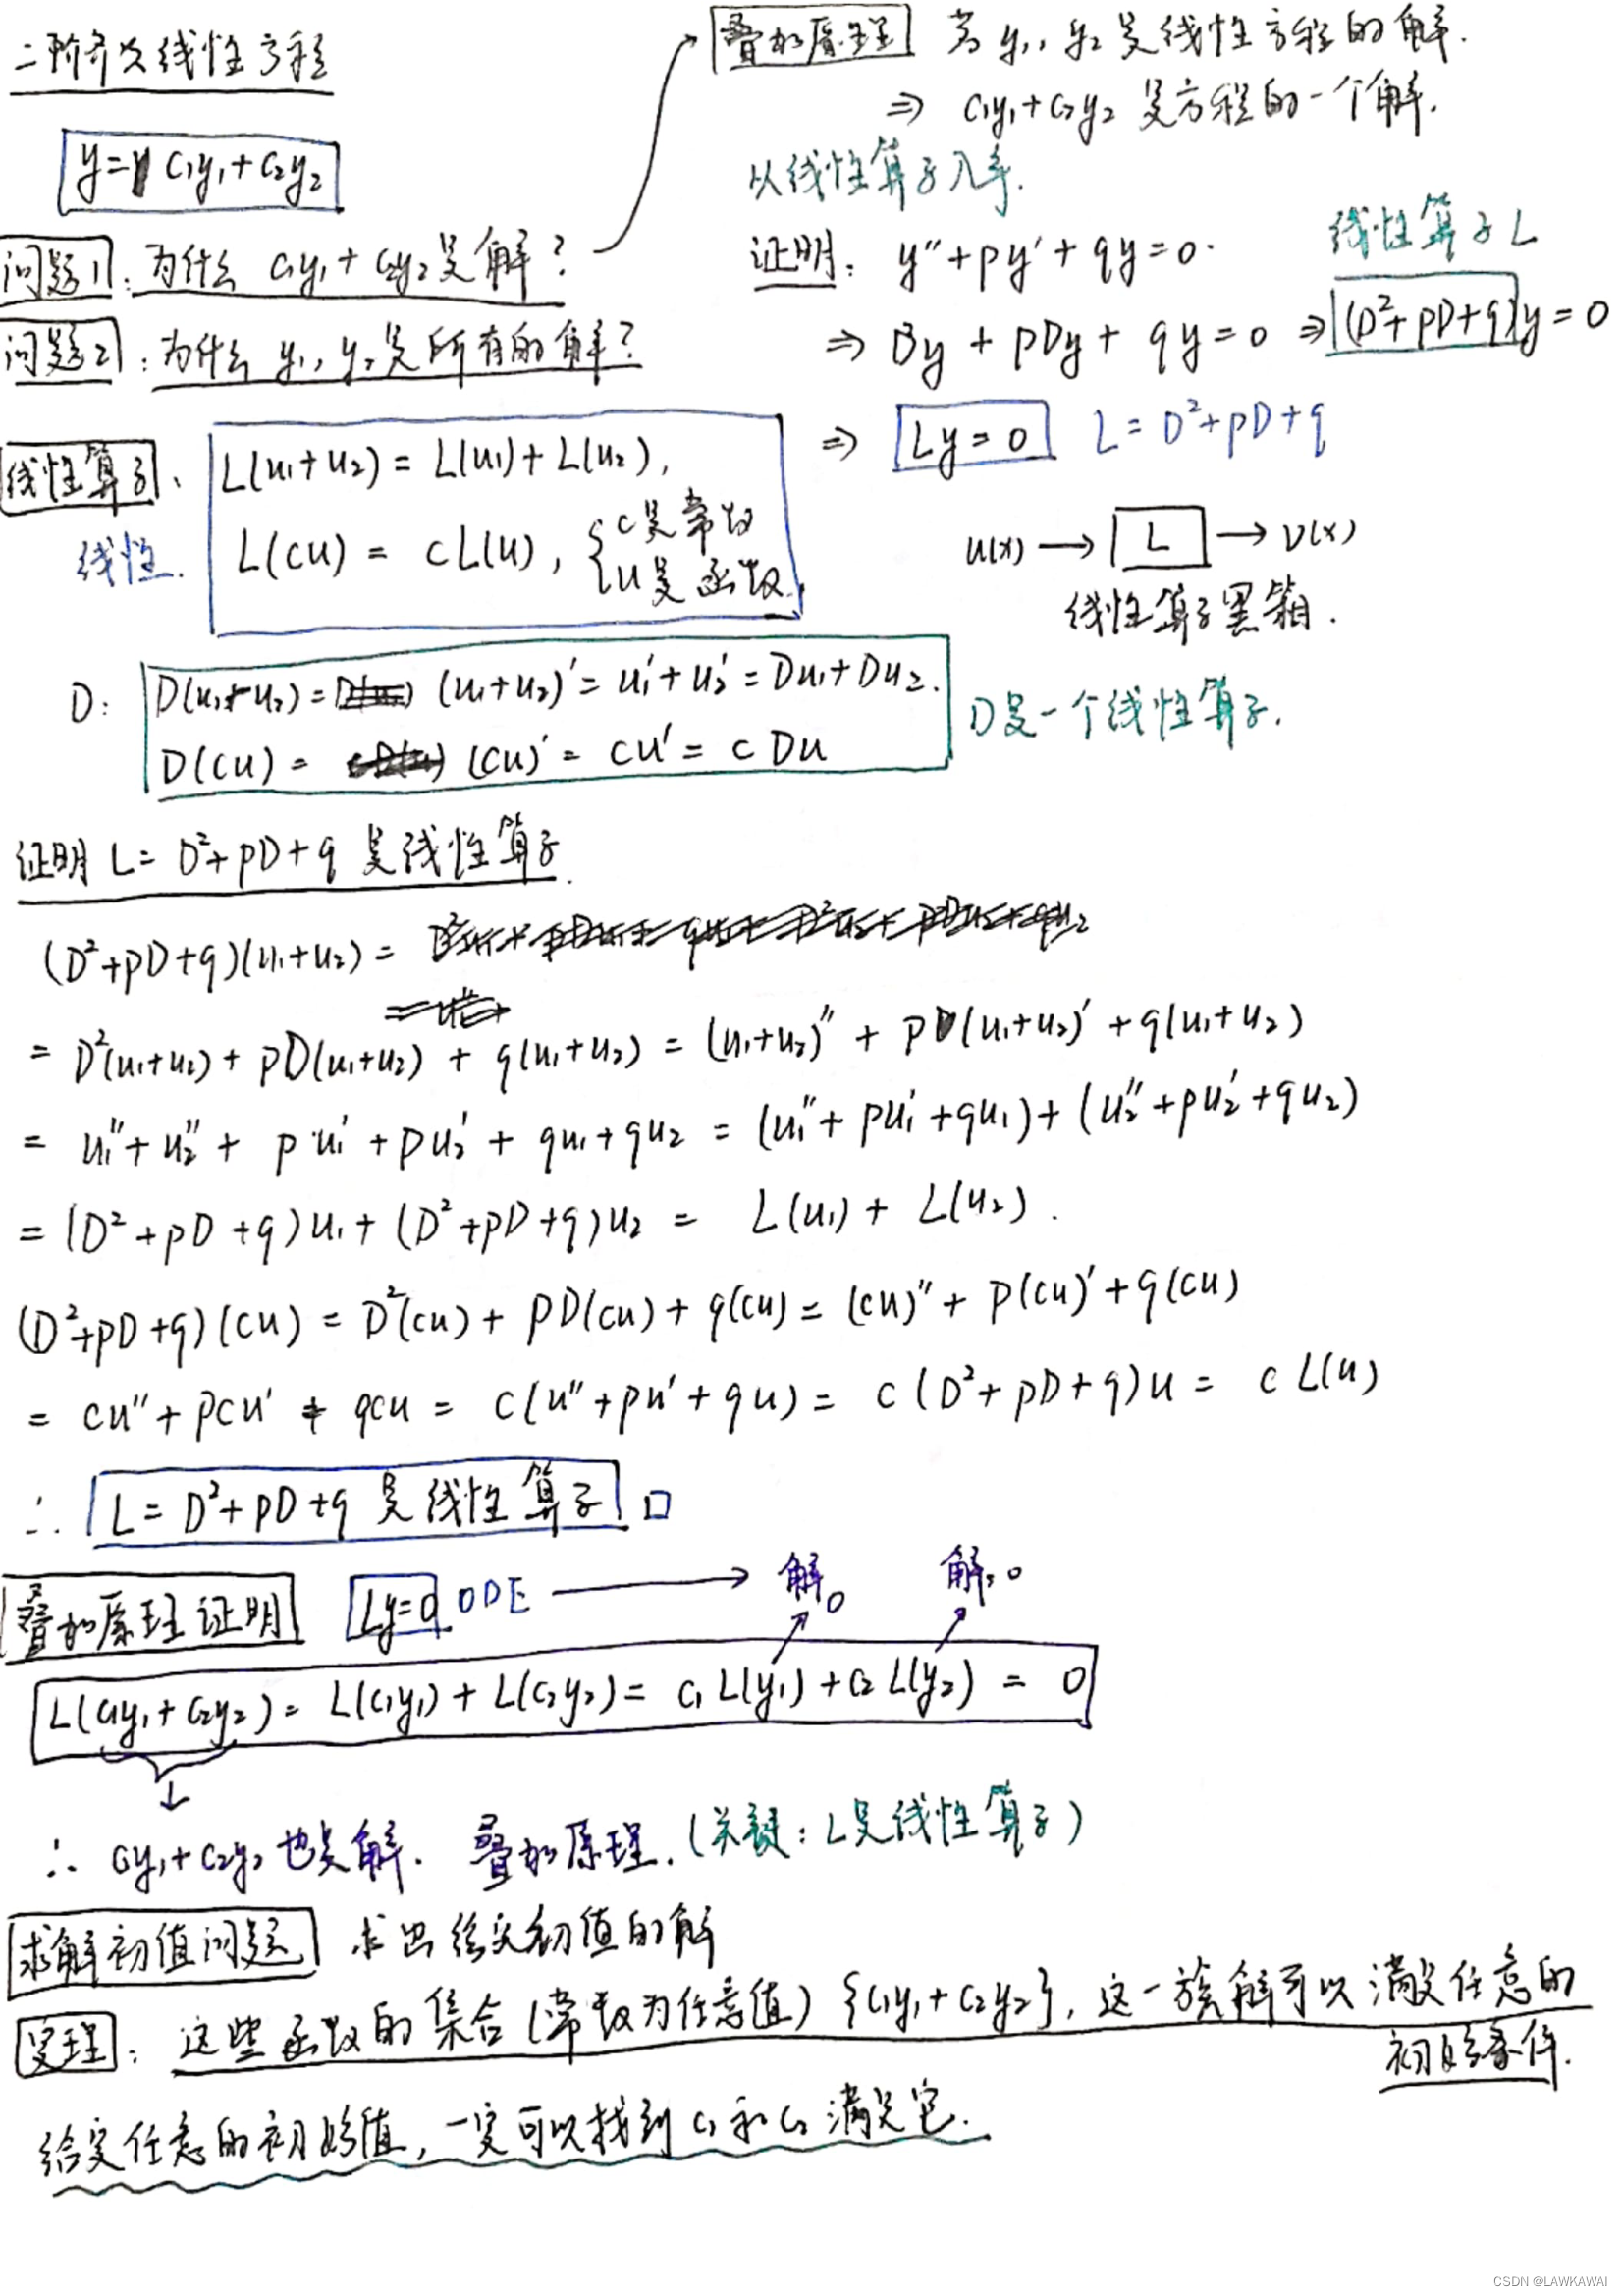 二阶齐次线性方程
y = c₁y₁ + c₂y₂
问题1：为什么 c₁y₁ + c₂y₂ 是解？
问题2：为什么 y₁, y₂ 是所有的解？
叠加原理 若 y₁, y₂ 是线性方程的解.
⇒ c₁y₁ + c₂y₂ 是方程的一个解.
从线性算子入手.
证明： y'' + py' + qy = 0.
线性算子 L
⇒ D²y + pDy + qy = 0 ⇒ (D² + pD + q)y = 0
⇒ Ly = 0 L = D² + pD + q
u(x) → L → v(x)
线性算子黑箱.
线性算子、
线性.
L(u₁+u₂) = L(u₁) + L(u₂),
L(cu) = cL(u), { c是常数
u是函数.
D:
D(u₁+u₂) = (u₁+u₂)' = u₁' + u₂' = Du₁ + Du₂.
D(cu) = (cu)' = cu' = c Du
D是一个线性算子.
证明 L = D² + pD + q 是线性算子.
(D² + pD + q)(u₁+u₂) =
= D²(u₁+u₂) + pD(u₁+u₂) + q(u₁+u₂) = (u₁+u₂)'' + p(u₁+u₂)' + q(u₁+u₂)
= u₁'' + u₂'' + p u₁' + pu₂' + qu₁ + qu₂ = (u₁'' + pu₁' + qu₁) + (u₂'' + pu₂' + qu₂)
= (D² + pD + q)u₁ + (D² + pD + q)u₂ = L(u₁) + L(u₂).
(D² + pD + q)(cu) = D²(cu) + pD(cu) + q(cu) = (cu)'' + p(cu)' + q(cu)
= cu'' + pcu' + qcu = c(u'' + pu' + qu) = c(D² + pD + q)u = c L(u)
∴ L = D² + pD + q 是线性算子 □
叠加原理证明 Ly=0 ODE → 解 0 解 0
L(c₁y₁ + c₂y₂) = L(c₁y₁) + L(c₂y₂) = c₁L(y₁) + c₂L(y₂) = 0
∴ c₁y₁ + c₂y₂ 也是解. 叠加原理. (关键：L是线性算子)
求解初值问题 求出给定初值的解
定理：这些函数的集合(常数为任意值) {c₁y₁ + c₂y₂}, 这一族解可以满足任意的
初始条件.
给定任意的初始值, 一定可以找到 c₁ 和 c₂ 满足它.
CSDN @LAWKAWAI